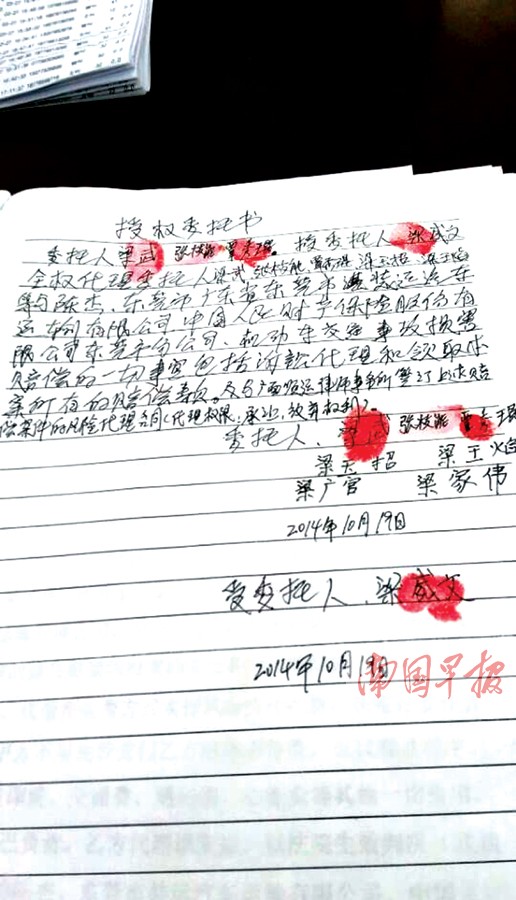 授权委托书
委托人梁武 张枝能 覃秀琼。授委托人 梁威文
全权代理委托人梁武、张枝能、覃秀琼、梁玉招、梁玉焰
与陈杰、东莞市广东宜东莞市 装运汽车
运车间有限公司中国人民财产保险股份有
限公司东莞市分公司、机动车交通事故损害
赔偿的一切事宜包括诉讼代理和领取本
案所有的赔偿款。及与广西 律师事务所签订上述赔
偿案件的风险代理合同(代理权限:承认、放弃权利)。
委托人:梁武 张枝能 覃秀琼
梁玉招 梁玉焰
梁广官 梁家伟
2014年10月19日
受委托人、梁威文
2014年10月19日
南国早报